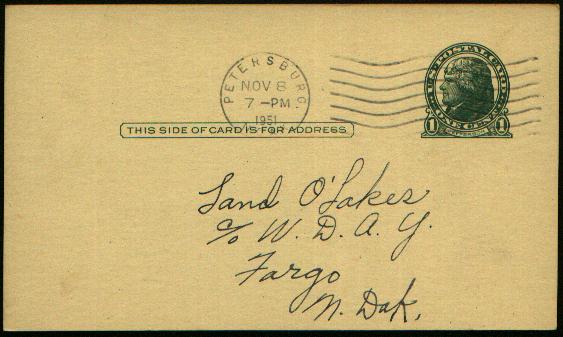 U.S. POSTAL CARD
PETERSBURG.
NOV 8
7 - PM
1951
1 ONE CENT 1
THIS SIDE OF CARD IS FOR ADDRESS
Land O'Lakes
c/o W. D. A. Y.
Fargo
N. Dak.